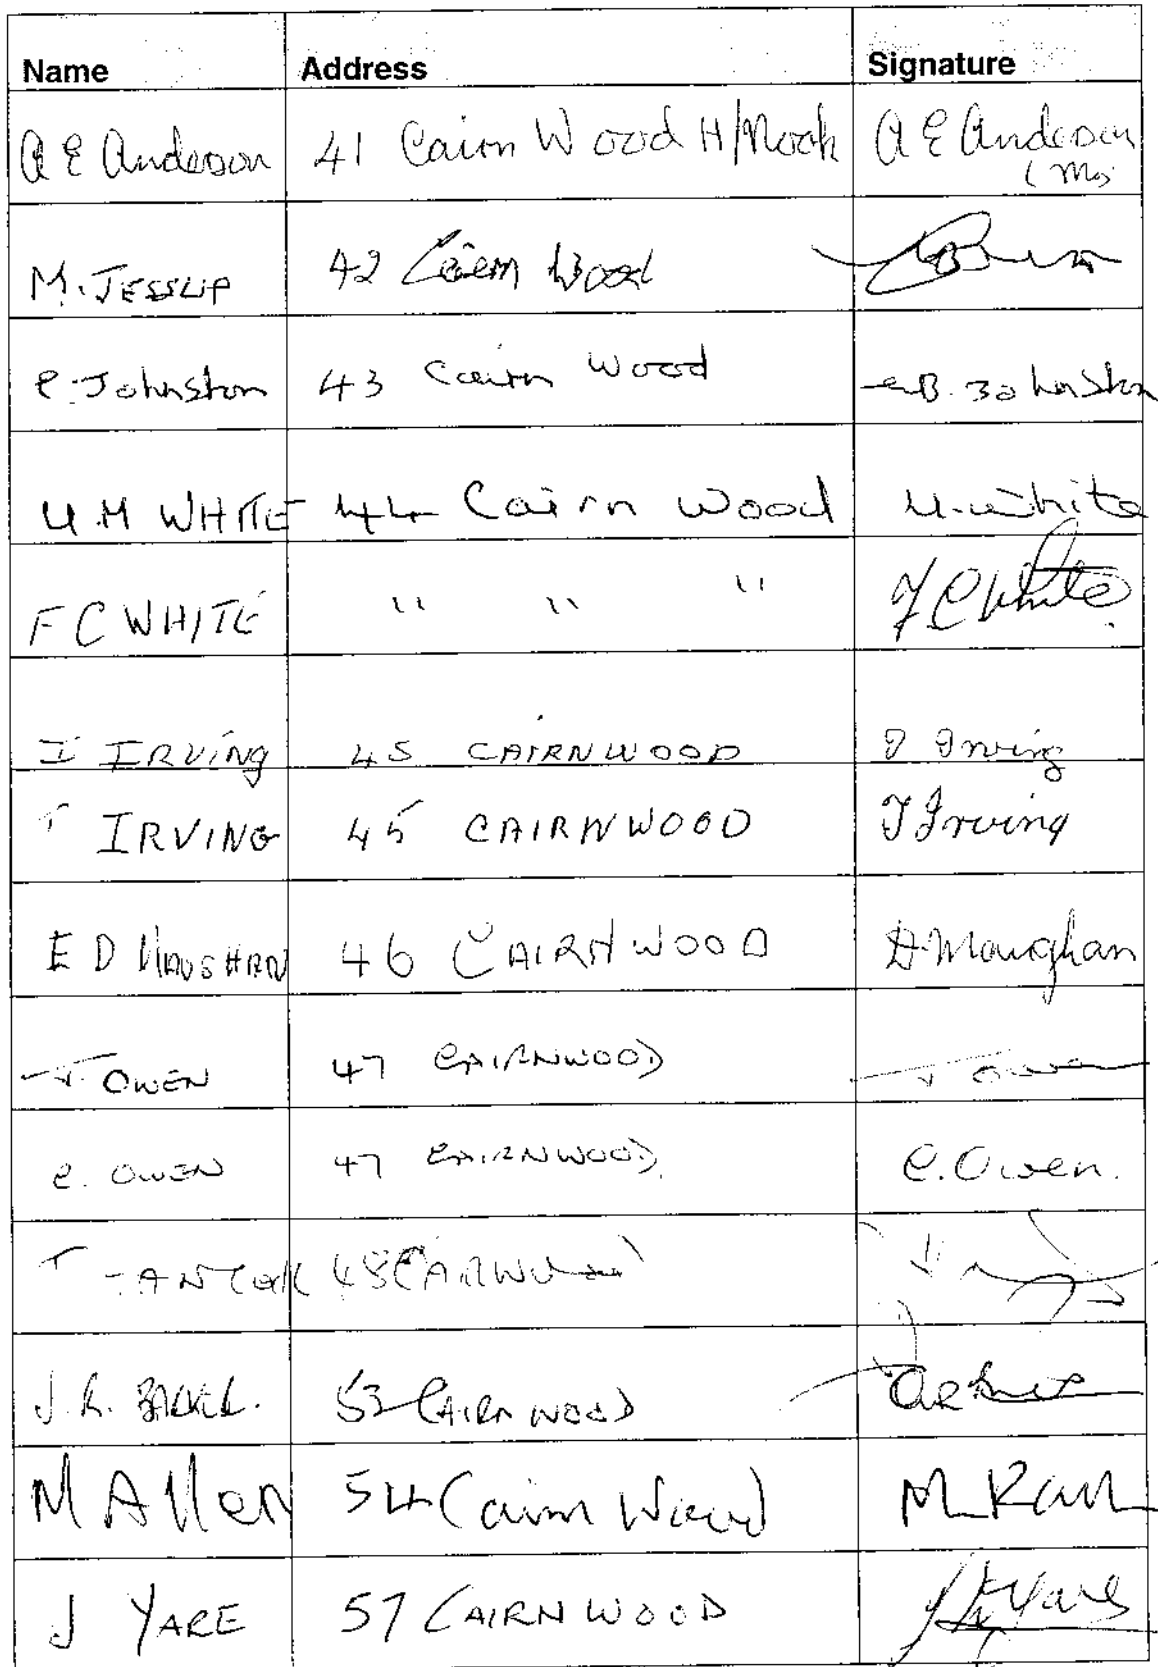 Name Address Signature
A E Anderson 41 Cairn Wood H/Nook A E Anderson
(Mrs
M. JESSUP 42 Cairn Wood
E. Johnston 43 Cairn Wood E.B. Johnston
U M WHITE 44 Cairn Wood U. White
F C WHITE " " " F C White
I IRVING 45 CAIRNWOOD I Irving
T IRVING 45 CAIRNWOOD T Irving
E D MAUGHAN 46 CAIRNWOOD D. Maughan
J. OWEN 47 CAIRNWOOD J Owen
C. OWEN 47 CAIRNWOOD C. Owen.
T 48 CAIRNWOOD
J. R. BARKER. 53 CAIRN WOOD
M Allen 54 Cairn Wood M
J YARE 57 CAIRN WOOD Yare